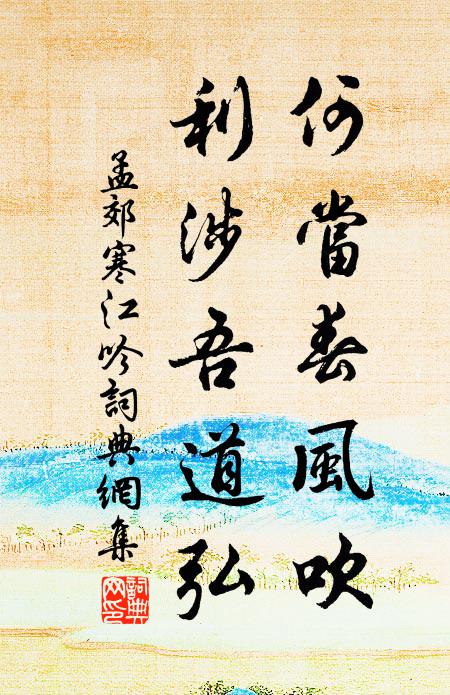 何當春風吹
利涉吾道弘
孟郊寒江吟詞典網集
詞典